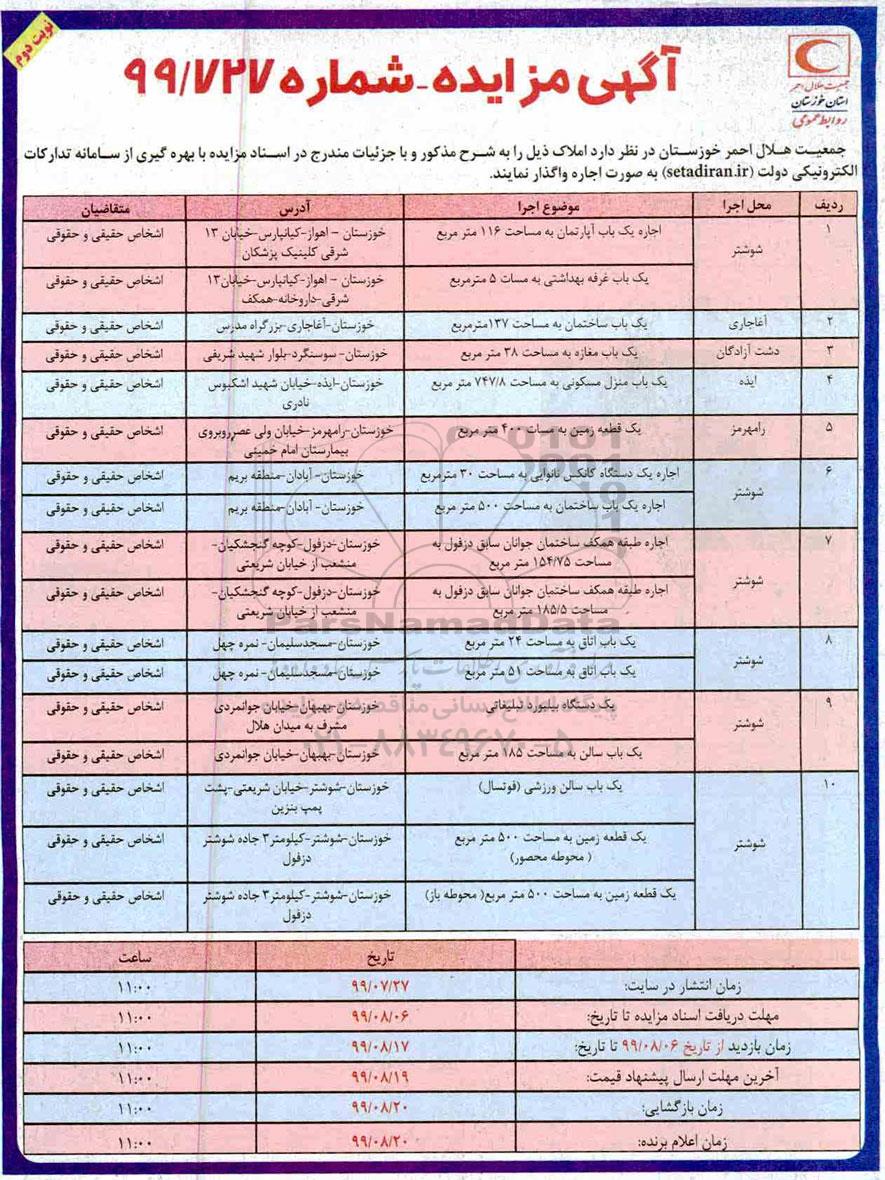 نوبت دوم
جمعیت هلال احمر
استان خوزستان
روابط عمومی
آگهی مزایده - شماره ۹۹/۷۲۷
جمعیت هلال احمر خوزستان در نظر دارد املاک ذیل را به شرح مذکور و با جزئیات مندرج در اسناد مزایده با بهره گیری از سامانه تدارکات
الکترونیکی دولت (setadiran.ir) به صورت اجاره واگذار نمایند.
ردیف محل اجرا موضوع اجرا آدرس متقاضیان
۱ شوشتر اجاره یک باب آپارتمان به مساحت ۱۱۶ متر مربع خوزستان – اهواز-کیانپارس-خیابان ۱۳ اشخاص حقیقی و حقوقی
شرقی کلینیک پزشکان
یک باب غرفه بهداشتی به مسات ۵ مترمربع خوزستان – اهواز-کیانپارس-خیابان۱۳ اشخاص حقیقی و حقوقی
شرقی-داروخانه-همکف
۲ آغاجاری یک باب ساختمان به مساحت ۱۳۷مترمربع خوزستان-آغاجاری-بزرگراه مدرس اشخاص حقیقی و حقوقی
۳ دشت آزادگان یک باب مغازه به مساحت ۳۸ متر مربع خوزستان- سوسنگرد-بلوار شهید شریفی اشخاص حقیقی و حقوقی
۴ ایذه یک باب منزل مسکونی به مساحت ۷۴۷/۸ متر مربع خوزستان-ایذه-خیابان شهید اشکبوس اشخاص حقیقی و حقوقی
نادری
۵ رامهرمز یک قطعه زمین به مسات ۴۰۰ متر مربع خوزستان-رامهرمز-خیابان ولی عصرروبروی اشخاص حقیقی و حقوقی
بیمارستان امام خمینی
۶ شوشتر اجاره یک دستگاه کانکس نانوایی به مساحت ۳۰ مترمربع خوزستان- آبادان-منطقه بریم اشخاص حقیقی و حقوقی
اجاره یک باب ساختمان به مساحت ۵۰۰ متر مربع خوزستان- آبادان-منطقه بریم اشخاص حقیقی و حقوقی
۷ شوشتر اجاره طبقه همکف ساختمان جوانان سابق دزفول به خوزستان-دزفول-کوچه گنجشکیان- اشخاص حقیقی و حقوقی
مساحت ۱۵۴/۷۵ متر مربع منشعب از خیابان شریعتی
اجاره طبقه همکف ساختمان جوانان سابق دزفول به خوزستان-دزفول-کوچه گنجشکیان- اشخاص حقیقی و حقوقی
مساحت ۱۸۵/۵ متر مربع منشعب از خیابان شریعتی
ParsNamadData
۸ شوشتر یک باب اتاق به مساحت ۲۴ متر مربع خوزستان-مسجدسلیمان- نمره چهل اشخاص حقیقی و حقوقی
یک باب اتاق به مساحت ۵۱ متر مربع خوزستان-مسجدسلیمان- نمره چهل اشخاص حقیقی و حقوقی
۹ شوشتر یک دستگاه بیلبورد تبلیغاتی خوزستان-بهبهان-خیابان جوانمردی اشخاص حقیقی و حقوقی
مشرف به میدان هلال
پایگاه اطلاع رسانی مناقصه و مزایده
یک باب سالن به مساحت ۱۸۵ متر مربع خوزستان-بهبهان-خیابان جوانمردی اشخاص حقیقی و حقوقی
۰۲۱-۸۸۳۴۹۶۷۰-۵
۱۰ شوشتر یک باب سالن ورزشی (فوتسال) خوزستان-شوشتر-خیابان شریعتی-پشت اشخاص حقیقی و حقوقی
پمپ بنزین
یک قطعه زمین به مساحت ۵۰۰ متر مربع خوزستان-شوشتر-کیلومتر۳ جاده شوشتر اشخاص حقیقی و حقوقی
( محوطه محصور) دزفول
یک قطعه زمین به مساحت ۵۰۰ متر مربع( محوطه باز) خوزستان-شوشتر-کیلومتر۳ جاده شوشتر اشخاص حقیقی و حقوقی
دزفول
تاریخ ساعت
زمان انتشار در سایت: ۹۹/۰۷/۲۷ ۱۱:۰۰
مهلت دریافت اسناد مزایده تا تاریخ: ۹۹/۰۸/۰۶ ۱۱:۰۰
زمان بازدید از تاریخ ۹۹/۰۸/۰۶ تا تاریخ: ۹۹/۰۸/۱۷ ۱۱:۰۰
آخرین مهلت ارسال پیشنهاد قیمت: ۹۹/۰۸/۱۹ ۱۱:۰۰
زمان بازگشایی: ۹۹/۰۸/۲۰ ۱۱:۰۰
زمان اعلام برنده: ۹۹/۰۸/۲۰ ۱۱:۰۰